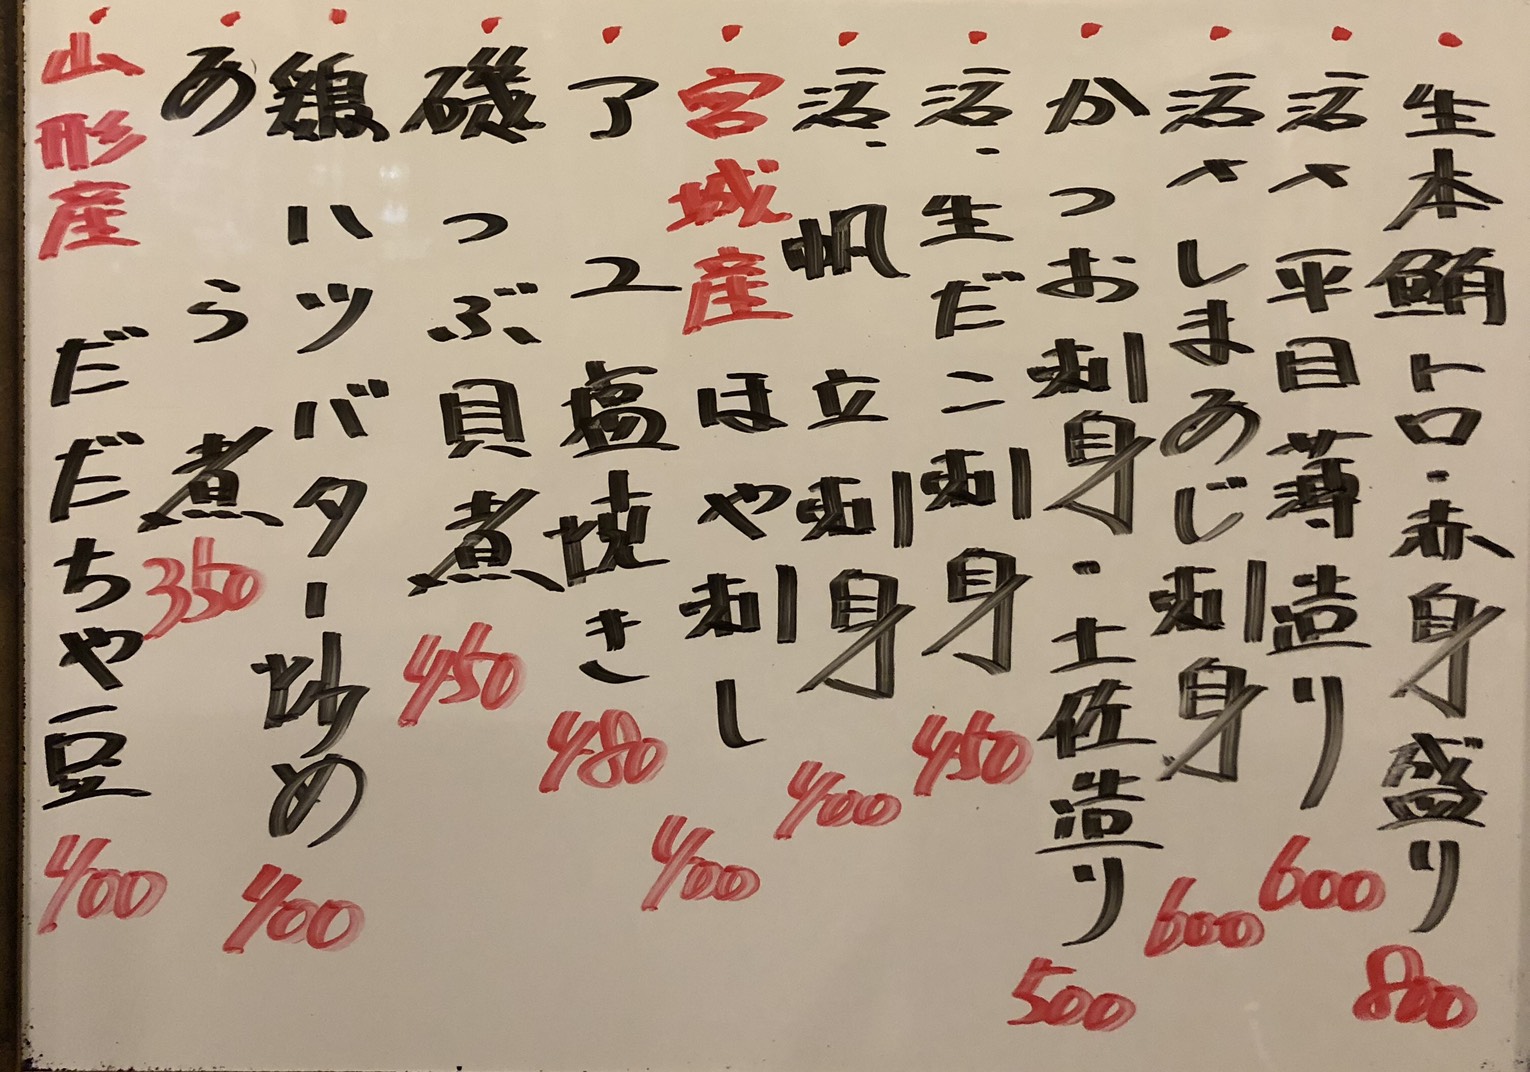 生本鮪トロ・赤身盛り 800
活〆平目薄造り 600
活〆しまあじ刺身 600
かつお刺身・土佐造り 500
活・生だこ刺身 450
活・帆立刺身 400
宮城産ほや刺し 400
アユ塩焼き 480
磯つぶ貝煮 450
鶏ハツバター炒め 400
あら煮 350
山形産だだちゃ豆 400